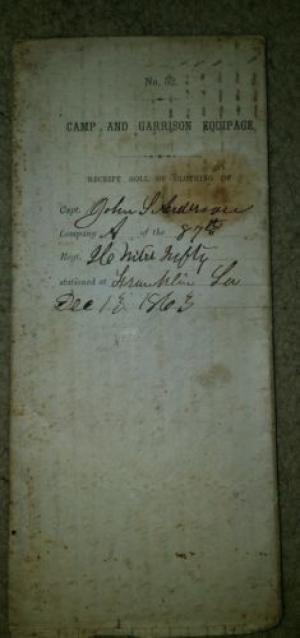 No. 52.
CAMP AND GARRISON EQUIPAGE.
RECEIPT ROLL OF CLOTHING OF
Capt. John S Anderson
Company A of the 87th
Regt.
stationed at Franklin La
Dec 13 1863